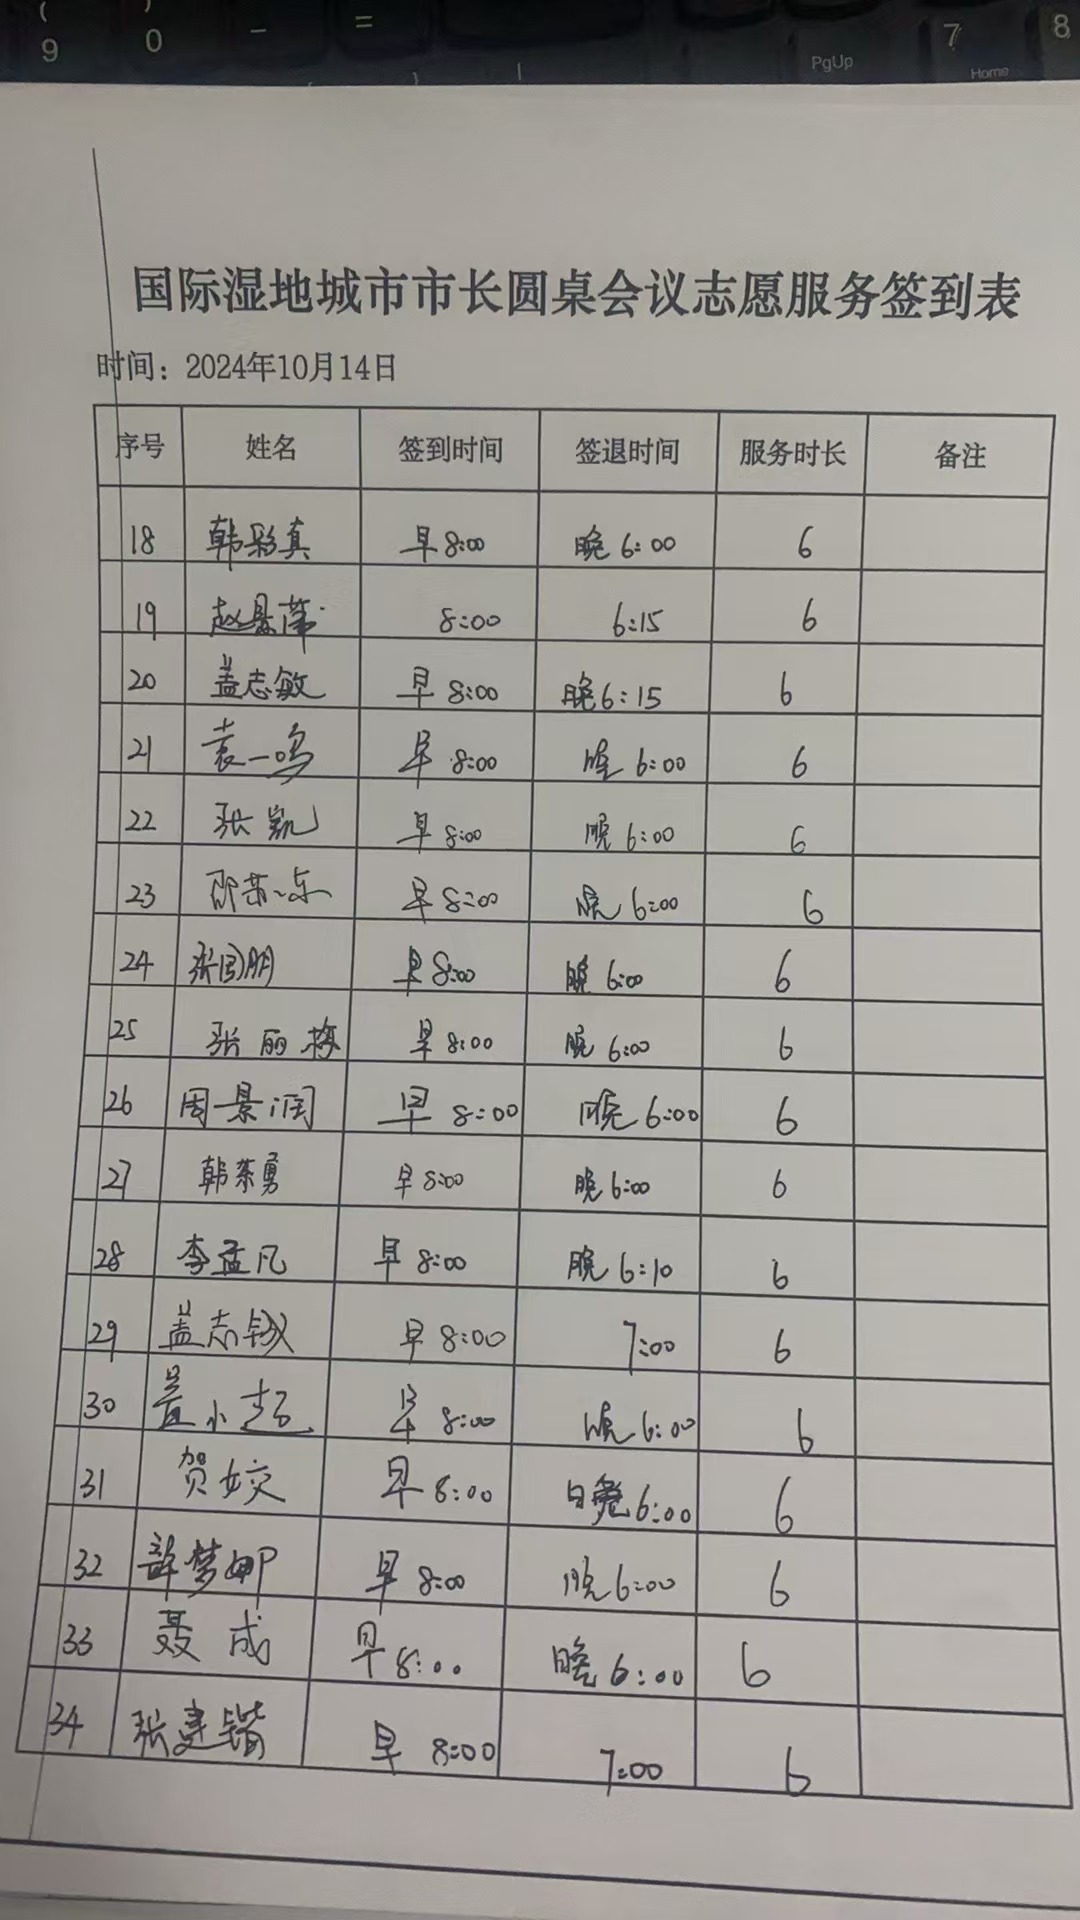 9 0 - = PgUp 7 8
Home
国际湿地城市市长圆桌会议志愿服务签到表
时间：2024年10月14日
序号 姓名 签到时间 签退时间 服务时长 备注
18 韩彩真 早8:00 晚6:00 6
19 赵景 8:00 6:15 6
20 盖志敏 早8:00 晚6:15 6
21 袁一鸣 早8:00 晚6:00 6
22 张凯 早8:00 晚6:00 6
23 邵 东 早8:00 晚6:00 6
24 张国朋 早8:00 晚6:00 6
25 张丽梅 早8:00 晚6:00 6
26 周景润 早8:00 晚6:00 6
27 韩荣勇 早8:00 晚6:00 6
28 李孟凡 早8:00 晚6:10 6
29 盖志 早8:00 7:00 6
30 小超 早8:00 晚6:00 6
31 贺姣 早8:00 晚6:00 6
32 许梦娜 早8:00 晚6:00 6
33 聂成 早8:00 晚6:00 6
34 张建锴 早8:00 7:00 6